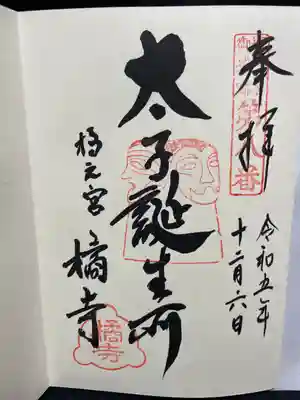 奉拝
令和五年
十二月六日
太子誕生所
橘元宮
橘寺
橘寺